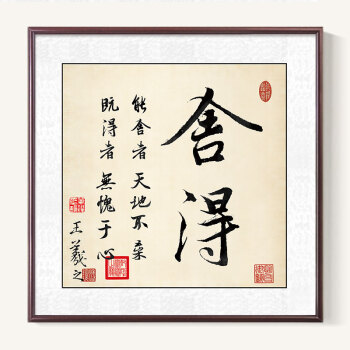 舍得
能舍者 天地不棄
既得者 無愧于心
王羲之